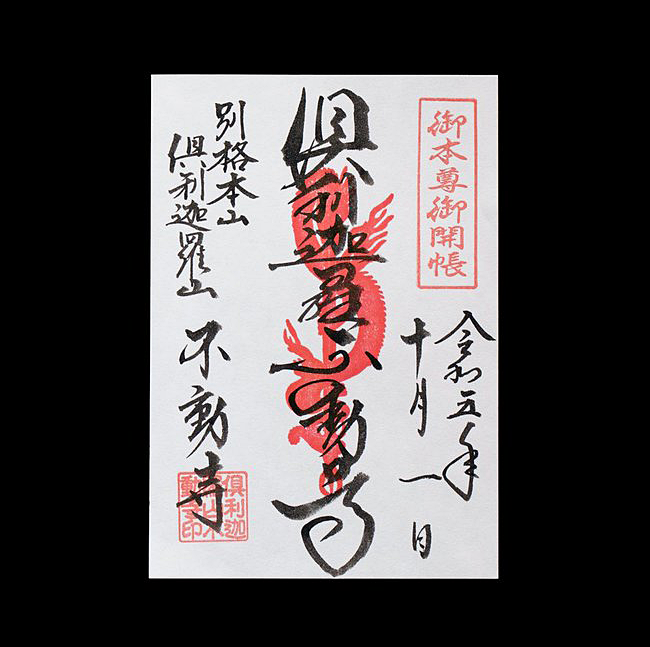 御本尊御開帳
令和五年
十月一日
倶利迦羅不動尊
別格本山
倶利迦羅山
不動寺